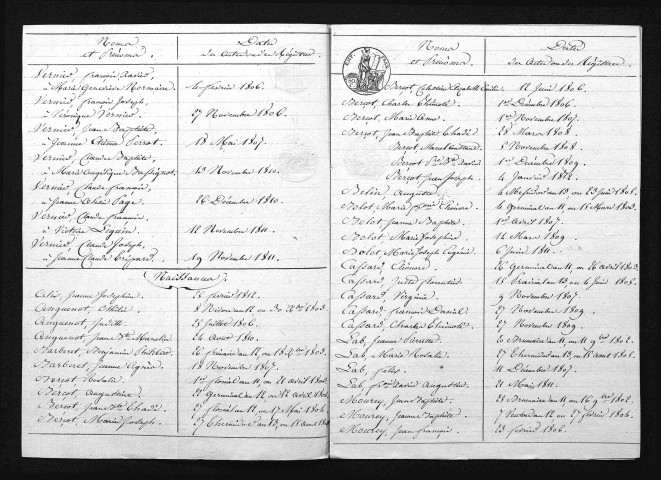 Noms
et Prénoms.
Date
des Actes ou des Registres.
Vernier, françois Xavier,
à Marie Geneviève Normaine.
4 février 1806.
Vernier, françois Joseph,
à Véronique Vernier.
27 Novembre 1806.
Vernier, Jean Baptiste,
à Jeanne Perrot.
18 Mai 1807.
Vernier, Claude Baptiste,
à Marie Angélique
13 Novembre 1810.
Vernier, Claude françois,
à Jeanne Page.
26 Décembre 1810.
Vernier, Claude françois,
à Victoire
11 Novembre 1811.
Vernier, Claude Joseph,
à Jeanne Claude
19 Novembre 1811.
Naissances.
Jeanne Joséphine.
février 1812.
Anguenot,
8 Nivôse an 12 ou 30 Xbre 1803
Anguenot, Judith.
25 Juillet 1806.
Anguenot, Jean Bte Marcelin
24 avril 1810.
Barberet, Benjamin
26 frimaire an 12 ou 18 Xbre 1803.
Barberet, Jeanne Agnès.
18 Novembre 1807.
Rosalie.
1er floréal an 11 ou 21 avril 1803.
Berçot, Augustine.
22 Germinal an 12 ou 12 avril 1804.
Berçot, Jean Bte Thadé.
27 floréal an 11 ou 17 Mai 1806.
Berçot, Marie Joseph.
27 Thermidor an 13, ou 15 août 1805
Noms
et Prénoms.
Date
des Actes ou des Registres.
Berçot, Célestine Elizabeth
12 Juin 1806.
Berçot, Charles
1er Décembre 1806.
Berçot, Marie Anne.
1er Novembre 1807.
Berçot, Jean Baptiste Thadé.
28 Mars 1808.
Berçot, Marcel
8 Novembre 1808.
Berçot Xavier
1er Décembre 1809.
Berçot, Jean Joseph.
4 Janvier 1812.
Belin, Augustin.
4 Messidor an 13, ou 23 Juin 1805.
Bolot, Marie
4 Germinal an 11, ou 25 Mars 1803.
Bolot, Jeanne Baptiste.
1er avril 1807.
Bolot, Marie Joséphine.
14 Mars 1809.
Bolot, Marie Joseph Eugénie.
6 Juin 1811.
Cassard, Eléonore.
26 Germinal an 11, ou 26 avril 1803.
Cassard, Juste florentin.
15 Prairial an 13, ou 4 Juin 1805.
Cassard, Virginie.
9 Novembre 1807.
Cassard, françois Daniel.
27 Novembre 1809.
Cassard, Charles
27 Novembre 1809.
Lab, Jeanne Pierrette.
6 Brumaire an 11 ou 9bre 1802.
Lab, Marie Rosalie.
27 Thermidor an 13, ou 15 août 1805.
Lab,
11 Décembre 1807.
Lab, Xavier Augustin.
21 Mai 1811.
Mourey, Jean Baptiste.
25 Brumaire an 11 ou 16 9bre 1802.
Mourey, Jeanne Baptiste.
7 Ventôse an 12 ou 27 février 1804.
Mourey, Jean françois.
23 février 1806.